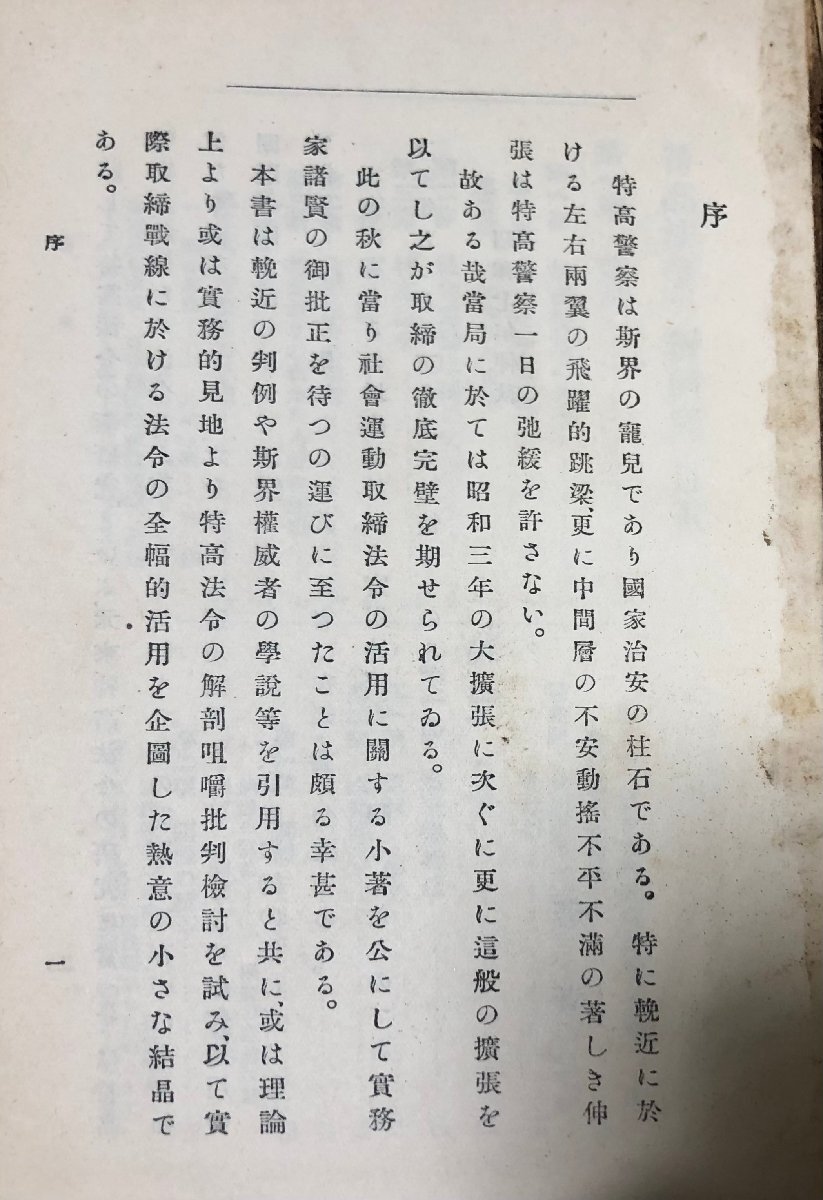 序
特高警察は斯界の寵兒であり國家治安の柱石である。特に輓近に於
ける左右兩翼の飛躍的跳梁、更に中間層の不安動搖不平不滿の著しき伸
張は特高警察一日の弛緩を許さない。
故ある哉當局に於ては昭和三年の大擴張に次ぐに更に這般の擴張を
以てし之が取締の徹底完璧を期せられてゐる。
此の秋に當り社會運動取締法令の活用に關する小著を公にして實務
家諸賢の御批正を待つの運びに至つたことは頗る幸甚である。
本書は輓近の判例や斯界權威者の學說等を引用すると共に、或は理論
上より或は實務的見地より特高法令の解剖咀嚼批判檢討を試み、以て實
際取締戰線に於ける法令の全幅的活用を企圖した熱意の小さな結晶で
ある。
序
一